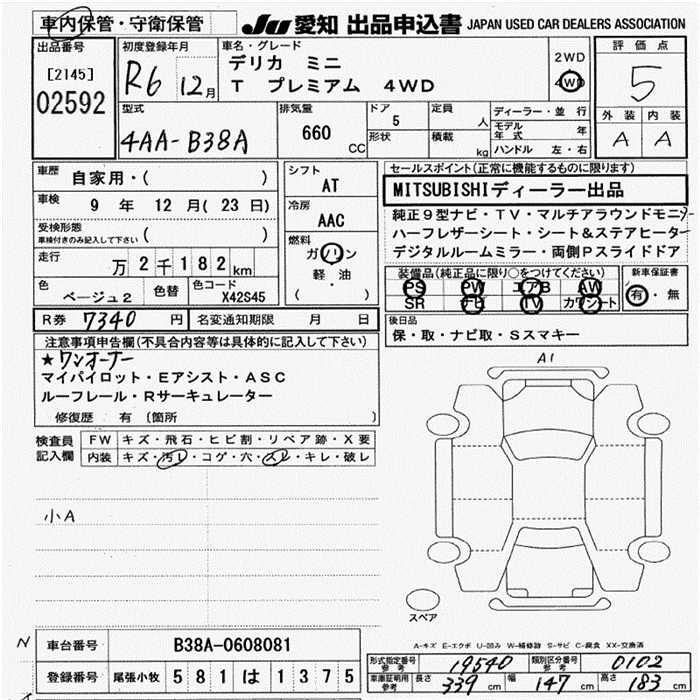 車内保管・守衛保管 JU 愛知 出品申込書 JAPAN USED CAR DEALERS ASSOCIATION
出品番号 初度登録年月 車名・グレード 評価点
[2145] R6 12月 デリカ ミニ 2WD
02592 T プレミアム 4WD 4WD 5
型式 排気量 ドア 定員 ディーラー・並行 外装 内装
4AA-B38A 660 CC 5 人 モデル年式 年 A A
形状 積載 kg ハンドル 左・右
車歴 自家用・( ) シフト AT セールスポイント(正常に機能するものに限ります)
車検 9年 12月(23日) 冷房 AAC MITSUBISHIディーラー出品
受検形態 ( ) 純正9型ナビ・TV・マルチアラウンドモニター
車検付きのみ記入して下さい 燃料 ハーフレザーシート・シート&ステアヒーター
走行 万2千182km ガソリン デジタルルームミラー・両側Pスライドドア
軽・油
( )
色 色替 色コード 装備品(純正品に限り○をつけてください) 新車保証書
ベージュ2 X42S45 PS PW エアB AW 有・無
SR ナビ TV カワシート
R券 7340円 名変通知期限 月 日 後日品
注意事項申告欄(不具合内容等は具体的に記入して下さい) 保・取・ナビ取・Sスマキー
★ワンオーナー
マイパイロット・Eアシスト・ASC
ルーフレール・Rサーキュレーター
修復歴 有 (箇所 )
A1
検査員記入欄 FW キズ・飛石・ヒビ割・リペア跡・X要
内装 キズ・汚レ・コゲ・穴・スレ・キレ・破レ
小A
スペア
A-キズ E-エクボ U-凹み W-補修跡 S-サビ C-腐食 XX-交換済
N 車台番号 B38A-0608081
形式指定番号 参考 19540 類別区分番号 参考 0102
登録番号 尾張小牧 581 は 1375
車庫証明用 参考 長さ 339cm 幅 147cm 高さ 183cm